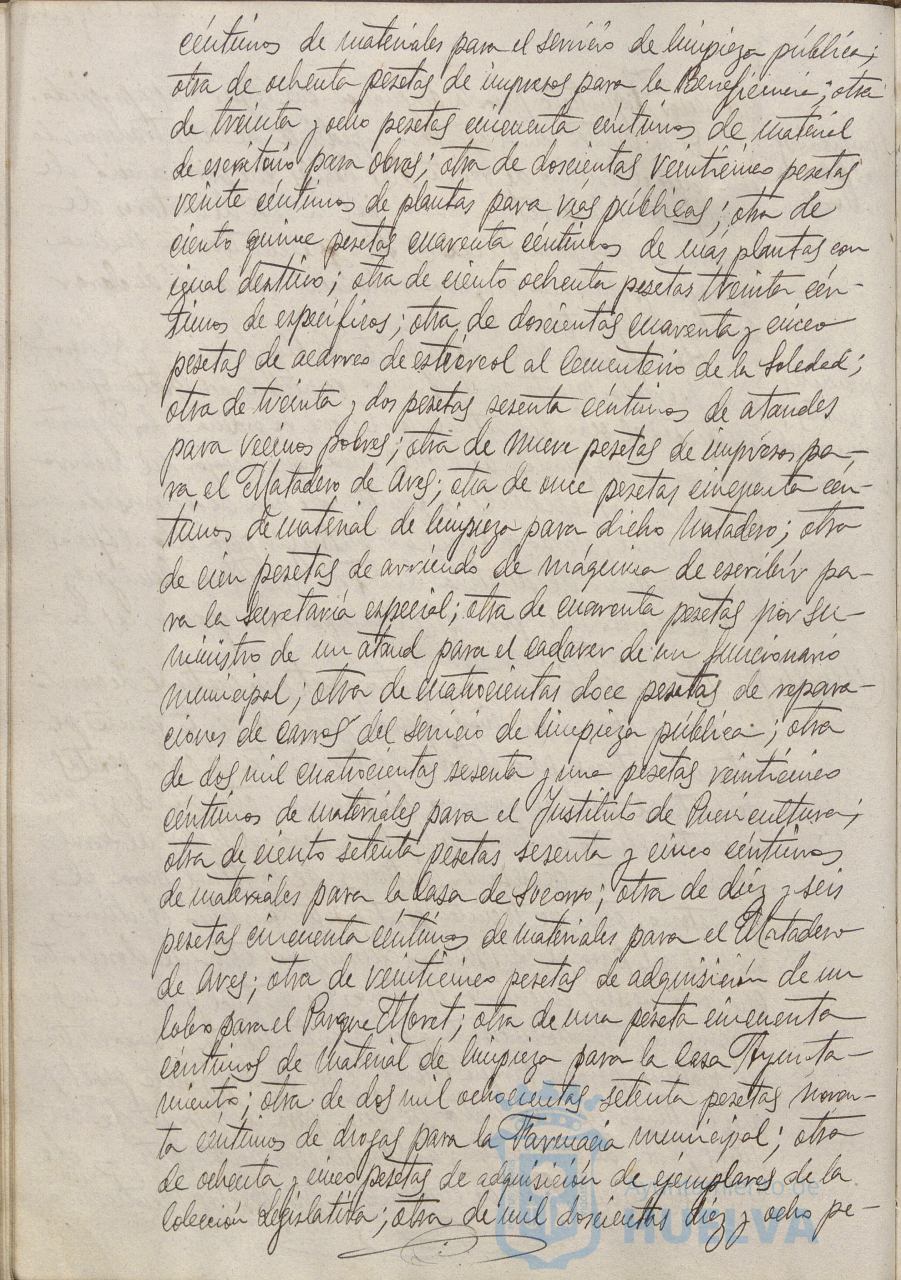 céntimos de materiales para el servicio de limpieza pública;
otra de ochenta pesetas de impresos para la Beneficencia; otra
de treinta y ocho pesetas cincuenta céntimos de material
de escritorio para obras; otra de doscientas veinticinco pesetas
veinte céntimos de plantas para vías públicas; otra de
ciento quince pesetas cuarenta céntimos de más plantas con
igual destino; otra de ciento ochenta pesetas treinta cén-
timos de específicos; otra de doscientas cuarenta y cinco
pesetas de acarreo de estiércol al cementerio de la Soledad;
otra de treinta y dos pesetas sesenta céntimos de ataudes
para vecinos pobres; otra de nueve pesetas de impresos pa-
ra el Matadero de Aves; otra de once pesetas cincuenta cén-
timos de material de limpieza para dicho Matadero; otra
de cien pesetas de arriendo de máquina de escribir pa-
ra la Secretaría especial; otra de cuarenta pesetas por su-
ministro de un ataud para el cadaver de un funcionario
municipal; otra de cuatrocientas doce pesetas de repara-
ciones de carros del servicio de limpieza pública; otra
de dos mil cuatrocientas sesenta y una pesetas veinticinco
céntimos de materiales para el Instituto de Puericultura;
otra de ciento setenta pesetas sesenta y cinco céntimos
de materiales para la Casa de Socorro; otra de diez y seis
pesetas cincuenta céntimos de materiales para el Matadero
de Aves; otra de veinticinco pesetas de adquisición de un
lobo para el Parque Moret; otra de una peseta cincuenta
céntimos de material de limpieza para la Casa Ayunta-
miento; otra de dos mil ochocientas setenta pesetas noven-
ta céntimos de drogas para la Farmacia municipal; otra
de ochenta y cinco pesetas de adquisición de ejemplares de la
Colección Legislativa; otra de mil doscientas diez y ocho pe-
Ayuntamiento de
HUELVA